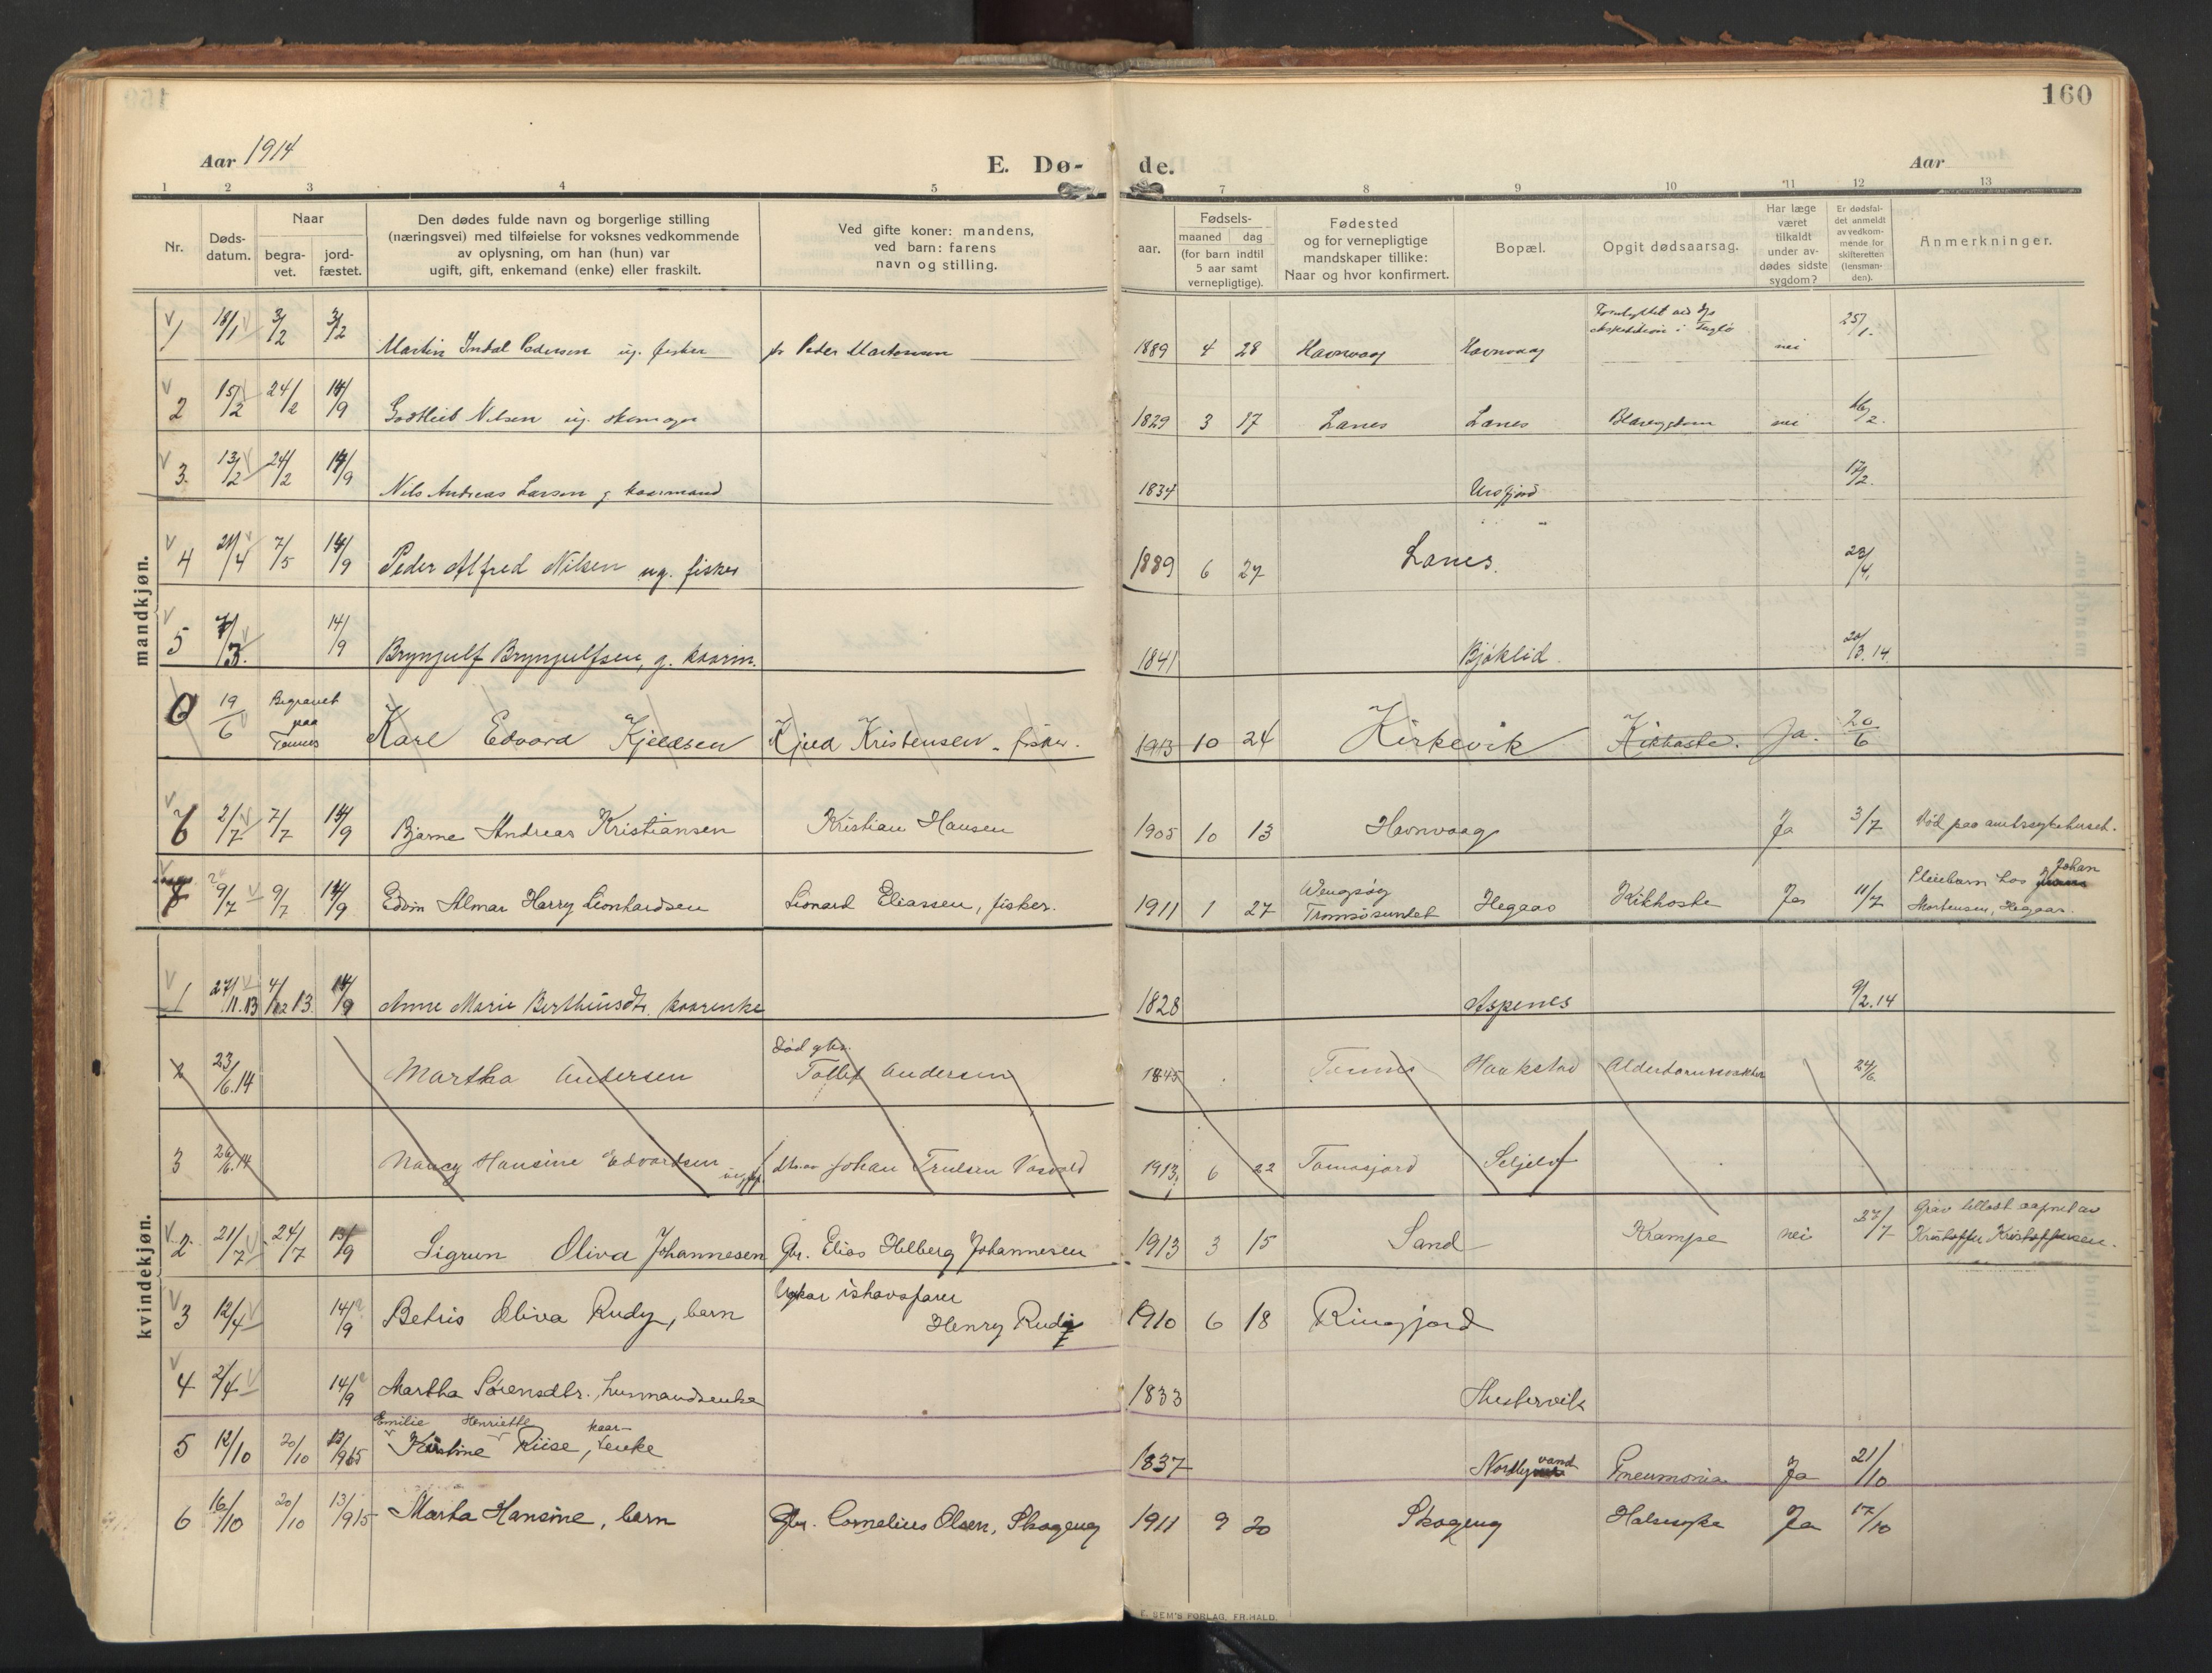 160
Aar 1914
E. Dø- de.
Aar
1 2 3 4 5 7 8 9 10 11 12 13
Nr.
Døds-
datum.
Naar
begra-
vet.
jord-
fæstet.
Den dødes fulde navn og borgerlige stilling
(næringsvei) med tilføielse for voksnes vedkommende
av oplysning, om han (hun) var
ugift, gift, enkemand (enke) eller fraskilt.
Ved gifte koner: mandens,
ved barn: farens
navn og stilling.
Fødsels-
aar.
maaned dag
(for barn indtil
5 aar samt
vernepligtige).
Fødested
og for vernepligtige
mandskaper tillike:
Naar og hvor konfirmert.
Bopæl.
Opgit dødsaarsag.
Har læge
været
tilkaldt
under av-
dødes sidste
sygdom?
Er dødsfal-
det anmeldt
av vedkom-
mende for
skifteretten
(lensman-
den).
Anmerkninger.
mandkjøn.
1 18/1 3/2 3/2 Martin Indal Pedersen ug. fisker Peder Martensen 1889 4 28 Havnvaag Havnvaag nei 25/1.
2 15/2 24/2 14/9 Gotthieb Nilsen ug. 1829 3 17 Lanes Lanes nei 16/2.
3. 13/2 24/2 14/9 Nils Andreas Larsen g. kaarmand 1834 Ursfjord 17/2.
4 21/4 7/5 14/9 Peder Alfred Nilsen ug. fisker 1889 6 27 Lanes. 23/4.
5 7/3. 14/9 Brynjulf Brynjulfsen, g. kaarm. 1841 Bjøklid. 20/3.14.
6 19/6 Begravet paa Tennes Karl Edvard Kjeldsen Kjeld Kristensen - fisker. 1913 10 24 Kirkevik Kikhoste. Ja. 20/6
6 2/7 7/7 14/9 Bjarne Andreas Kristiansen Kristian Hansen 1905 10 13 Havnvaag Ja 3/7 Død paa amtssykehuset.
7 9/7 9/7 14/9 Edvin Almar Harry Leonhardsen Leonard Eliassen, fisker. 1911 1 27 Wengsøy Tromsøsundet Hegaas Kikhoste Ja 11/7 Pleiebarn hos Johan
Mortensen, Hegaas.
kvindekjøn.
1 27/11.13 4/12 13. 14/9 Anne Marie Berthinsdtr. kaarenke 1828 Aspenes 9/2.14
2 23/6.14 Martha Andersen Død gbr.
Tollef Andersen 1845 Tennes Haakstad Alderdomssvakhet 24/6.
3 26/6.14 Nancy Hansine Edvardsen dtr. av Johan Trulsen Vasvold 1913 6 22 Tamosjord Seljelv
2 21/7 24/7 13/9 Sigrun Oliva Johannesen Gbr. Elias Helberg Johannesen 1913 3 15 Sand Krampe nei 27/7 Grav tillast aapnet av
Kristoffer Kristoffersen.
3 12/4 14/9 Betris Oliva Rudy, barn ishavsfarer
Henry Rudi 1910 6 18 Risfjord
4 2/4 14/9 Martha Sørensdtr. husmandsenke 1833 Mestervik
5 12/10 20/10 13/9 15 Emilie Henriette
Kirstine Riise, kaarenke 1837 Nordbyvand Pneumonia Ja 21/10
6 16/10 20/10 13/9 15 Marta Hansine, barn Gbr. Cornelius Olsen, Skogeng 1911 9 20 Skogeng Halssyke Ja 17/10
E. SEM'S FORLAG, FR.HALD.